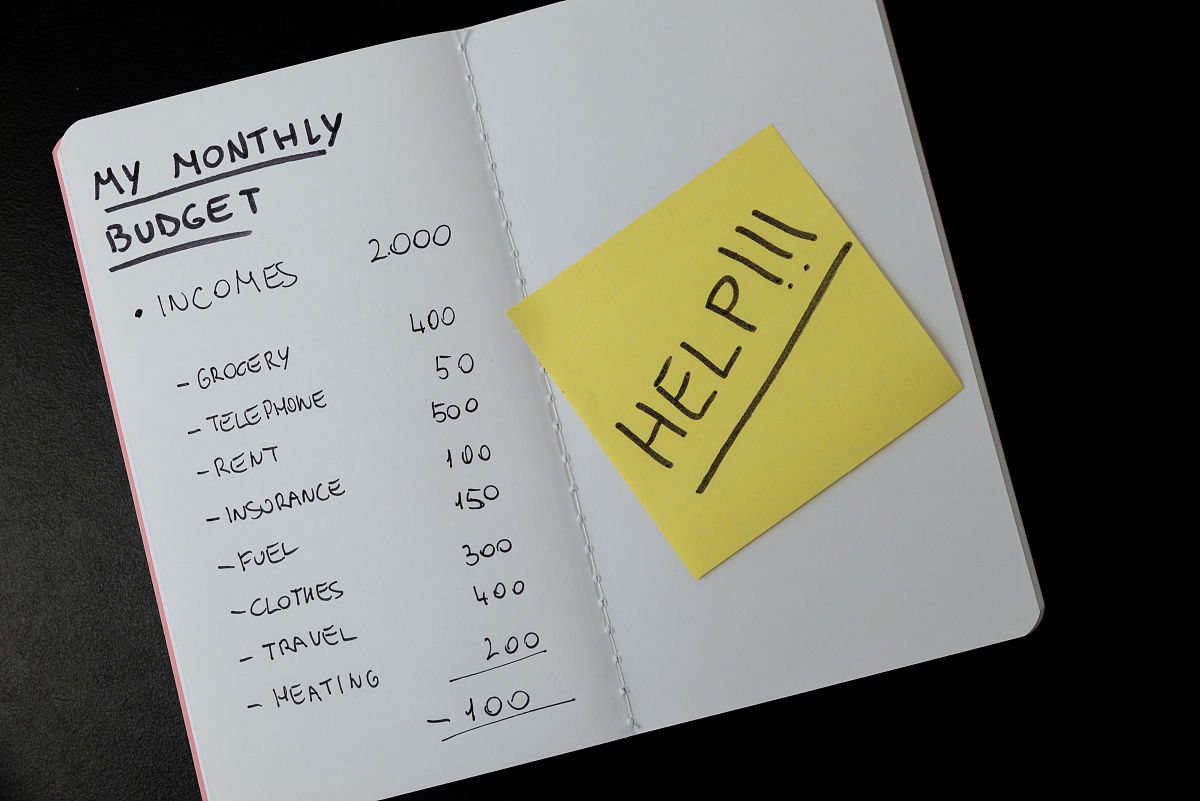 MY MONTHLY
BUDGET
• INCOMES 2.000
- GROCERY 400
- TELEPHONE 50
- RENT 500
- INSURANCE 100
- FUEL 150
- CLOTHES 300
- TRAVEL 400
- HEATING 200
- 100
HELP!!!